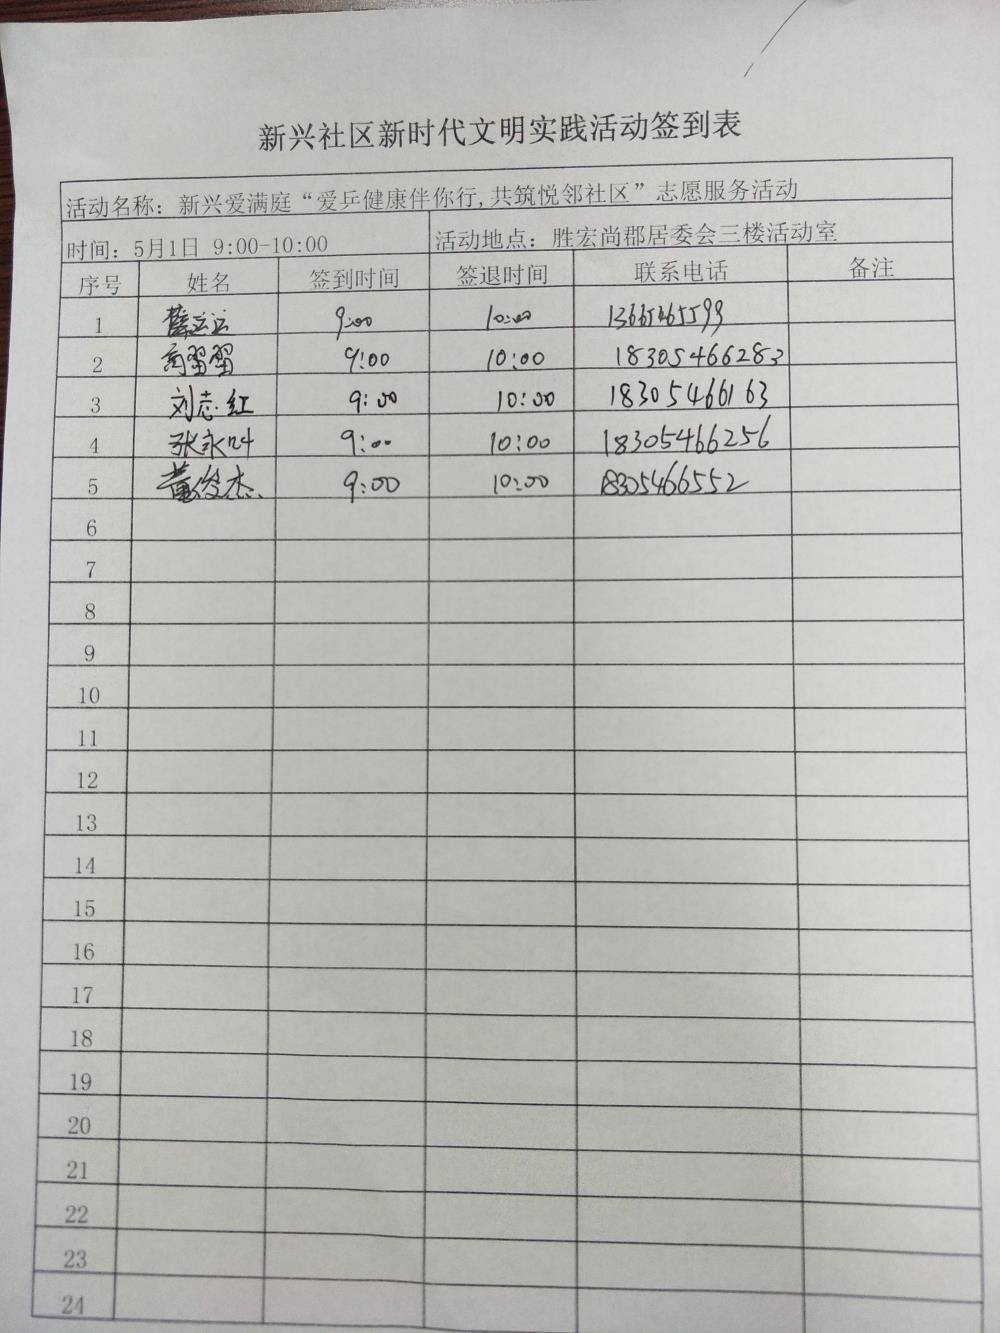 新兴社区新时代文明实践活动签到表
活动名称：新兴爱满庭“爱乒健康伴你行,共筑悦邻社区”志愿服务活动
时间：5月1日 9:00-10:00 活动地点：胜宏尚郡居委会三楼活动室
序号 姓名 签到时间 签退时间 联系电话 备注
1 9:00 10:00 13665465599
2 9:00 10:00 18305466283
3 刘志红 9:00 10:00 18305466163
4 张永叶 9:00 10:00 18305466256
5 董俊杰 9:00 10:00 18305466552
6
7
8
9
10
11
12
13
14
15
16
17
18
19
20
21
22
23
24